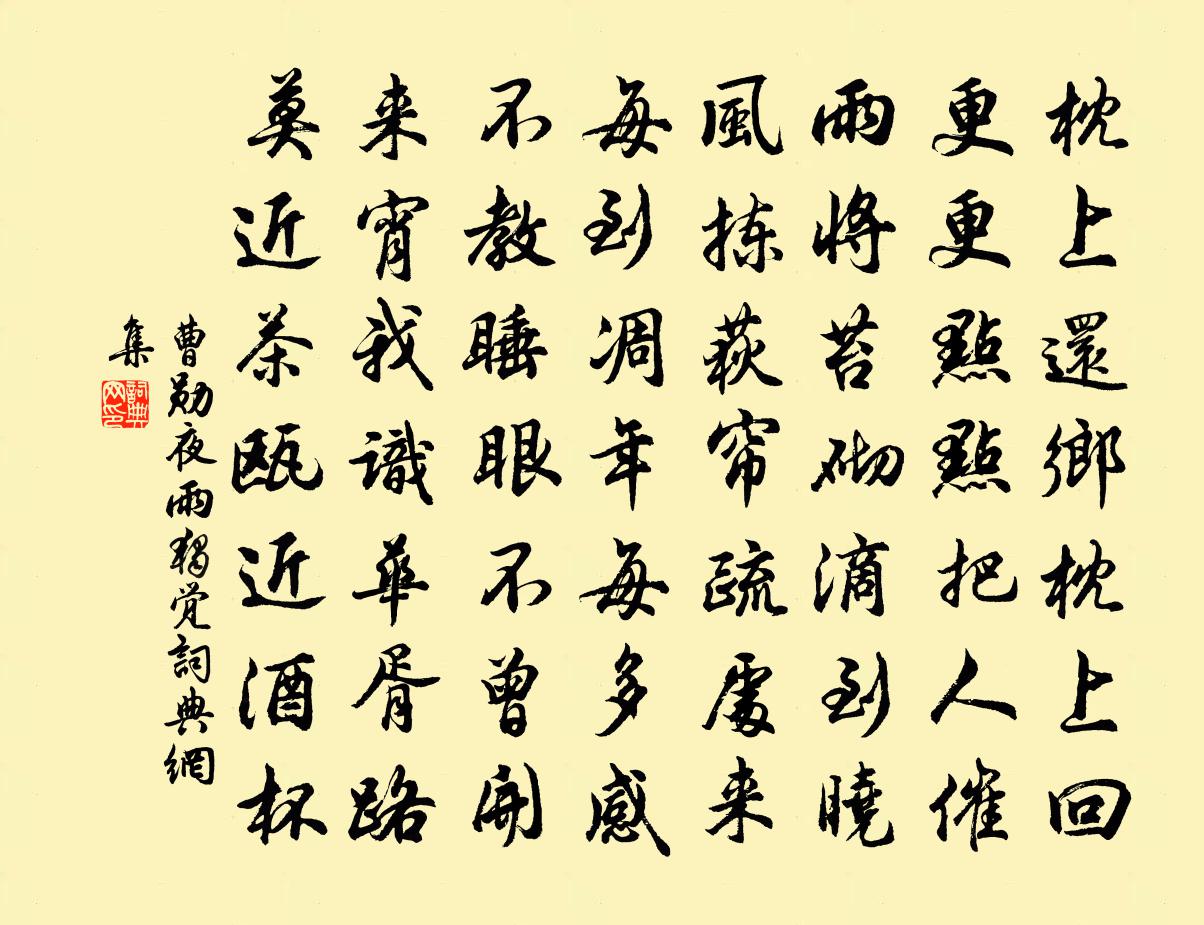 枕上還鄉枕上回
更更點點把人催
雨將苔砌滴到曉
風揀荻帘疏處来
每到凋年每多感
不教睡眼不曾開
来宵我識華胥路
莫近茶甌近酒杯
曹勛夜雨獨覺詞典網
集
詞典網印